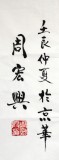 壬辰仲夏於京華
周宏興